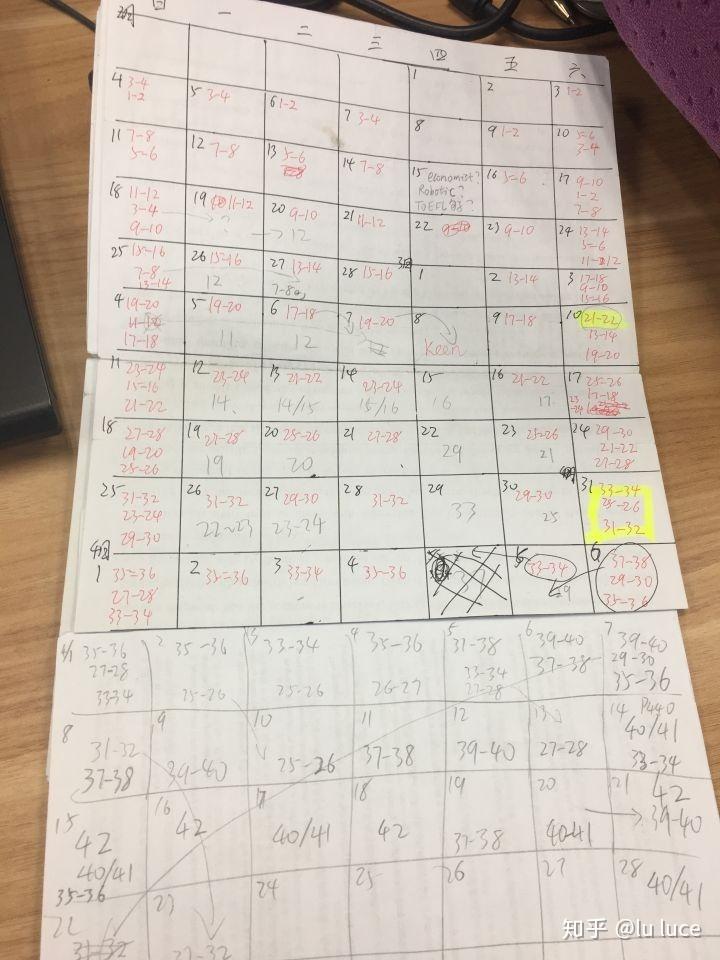 日 一 二 三 四 五 六
1
2
3 1-2
4 3-4
1-2
5 3-4
6 1-2
7 3-4
8
9 1-2
10 5-6
3-4
11 7-8
5-6
12 7-8
13 5-6
14 7-8
15 economist?
Robotic?
16 5-6
17 9-10
1-2
7-8
18 11-12
3-4
9-10
19 11-12
?
20 9-10
12
21 11-12
22
23 9-10
24 13-14
5-6
25 15-16
7-8
13-14
26 15-16
12
27 13-14
7-8
28 15-16
1
2 13-14
3 17-18
9-10
15-16
4 19-20
17-18
5 19-20
11
6 17-18
12
7 19-20
8
Keen
9 17-18
10 21-22
13-14
19-20
11 23-24
15-16
21-22
12 23-24
14
13 21-22
14/15
14 23-24
15/16
15
16
16 21-22
17
17 25-26
17-18
18 27-28
19-20
25-26
19 27-28
19
20 25-26
20
21 27-28
22
29
23 25-26
21
24 29-30
21-22
27-28
25 31-32
23-24
29-30
26 31-32
22-23
27 29-30
23-24
28 31-32
29
33
30 29-30
25
31 33-34
25-26
31-32
1 35-36
27-28
33-34
2 35-36
3 33-34
4 35-36
5 33-34
29
6 37-38
29-30
35-36
4/1 35-36
27-28
33-34
2 35-36
25-26
3 33-34
25-26
4 35-36
26-27
5 31-38
33-34
27-28
6 39-40
37-38
7 39-40
29-30
35-36
8
31-32
37-38
9
39-40
10
25-26
11
37-38
12
39-40
13
27-28
14 P440
40/41
33-34
15
42
40/41
35-36
16
42
17
40/41
18
42
19
37-38
20
40-41
21 42
39-40
22
31-32
23
27-32
24
25
26
27
28
40/41
知乎 @lu luce